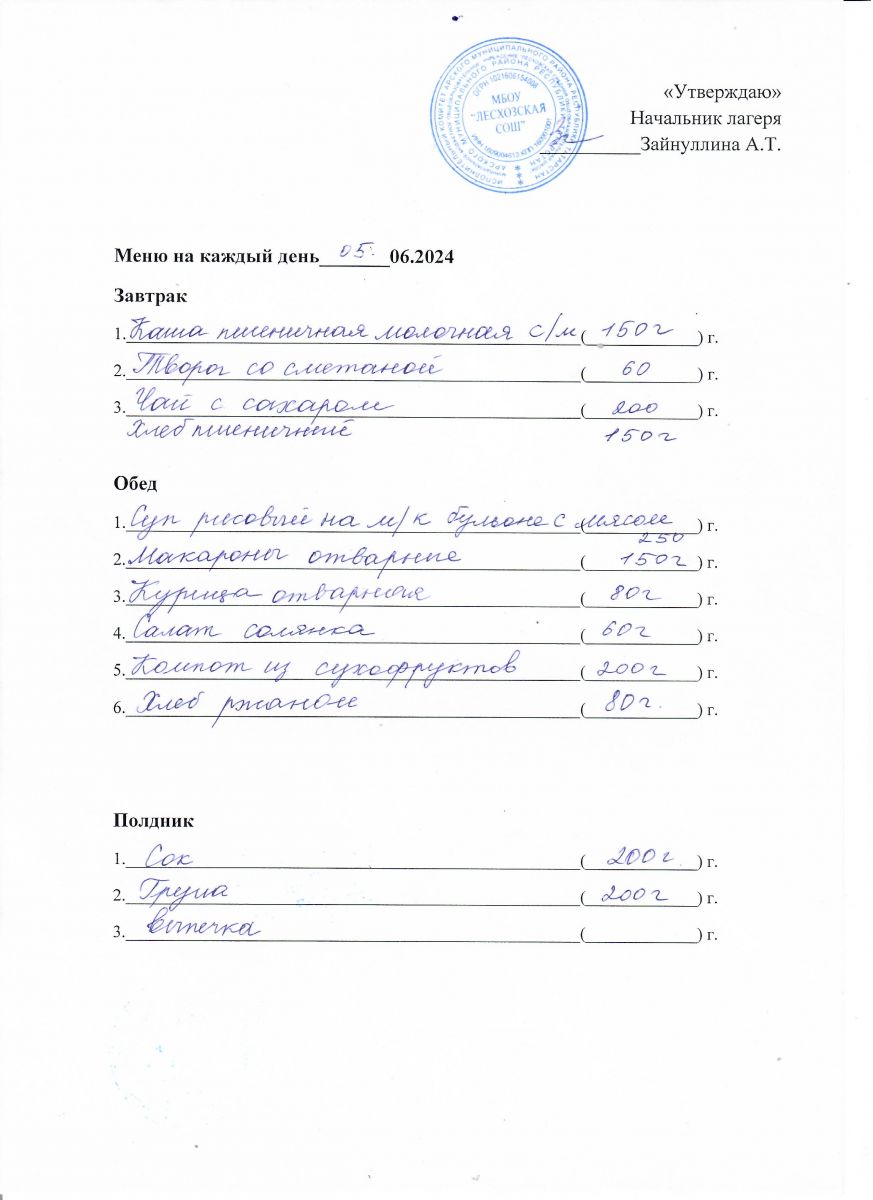 «Утверждаю»
Начальник лагеря
Зайнуллина А.Т.
МБОУ
"ЛЕСХОЗСКАЯ
СОШ"
Меню на каждый день 05. 06.2024
Завтрак
1. Каша пшеничная молочная с/м (150 г) г.
2. Творог со сметаной (60) г.
3. Чай с сахаром (200) г.
Хлеб пшеничный 150 г
Обед
1. Суп рисовый на м/к бульоне с мясом () г.
250
2. Макароны отварные (150 г) г.
3. Курица отварная (80 г) г.
4. Салат солянка (60 г) г.
5. Компот из сухофруктов (200 г) г.
6. Хлеб ржаной (80 г.) г.
Полдник
1. Сок (200 г.) г.
2. Груша (200 г) г.
3. Выпечка () г.